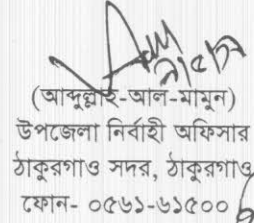 (আব্দুল্লাহ-আল-মামুন)
উপজেলা নির্বাহী অফিসার
ঠাকুরগাও সদর, ঠাকুরগাও
ফোন- ০৫৬১-৬১৫০০